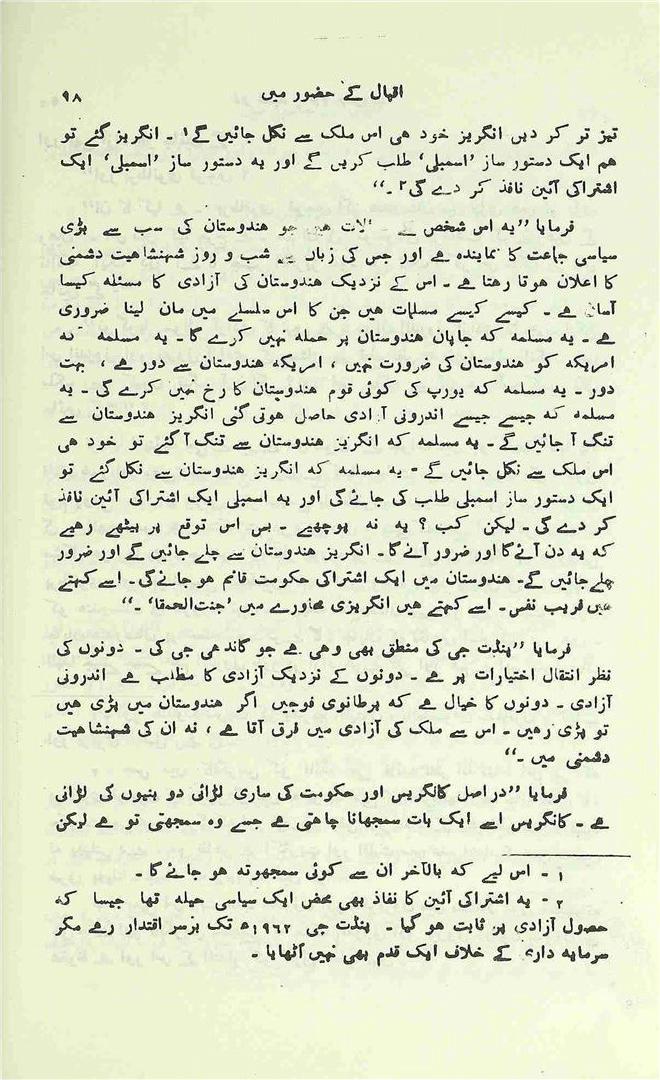 اقبال کے حضور میں ۹۸
تیز تر کر دیں انگریز خود ہی اس ملک سے نکل جائیں گے۱ ۔ انگریز گئے تو
ہم ایک دستور ساز ’اسمبلی‘ طلب کریں گے اور یہ دستور ساز ’اسمبلی‘ ایک
اشتراکی آئین نافذ کر دے گی۲ ۔‘‘
فرمایا ’’یہ اس شخص کے ہیں جو ہندوستان کی سب سے بڑی
سیاسی جماعت کا نمایندہ ہے اور جس کی زبان سے شب و روز شہنشاہیت دشمنی
کا اعلان ہوتا رہتا ہے ۔ اس کے نزدیک ہندوستان کی آزادی کا مسئلہ کیسا
آسان ہے ۔ کیسے کیسے مسلمات ہیں جن کا اس سلسلے میں مان لینا ضروری
ہے ۔ یہ مسلمہ کہ جاپان ہندوستان پر حملہ نہیں کرے گا ۔ یہ مسلمہ کہ
امریکہ کو ہندوستان کی ضرورت نہیں ، امریکہ ہندوستان سے دور ہے ، بہت
دور ۔ یہ مسلمہ کہ یورپ کی کوئی قوم ہندوستان کا رخ نہیں کرے گی ۔ یہ
مسلمہ کہ جیسے جیسے اندرونی آزادی حاصل ہوتی گئی انگریز ہندوستان سے
تنگ آ جائیں گے ۔ یہ مسلمہ کہ انگریز ہندوستان سے تنگ آ گئے تو خود ہی
اس ملک سے نکل جائیں گے ۔ یہ مسلمہ کہ انگریز ہندوستان سے نکل گئے تو
ایک دستور ساز اسمبلی طلب کی جائے گی اور یہ اسمبلی ایک اشتراکی آئین نافذ
کر دے گی ۔ لیکن کب ؟ یہ نہ پوچھیے ۔ بس اس توقع پر بیٹھے رہیے
کہ یہ دن آئے گا اور ضرور آئے گا ۔ انگریز ہندوستان سے چلے جائیں گے اور ضرور
چلے جائیں گے ۔ ہندوستان میں ایک اشتراکی حکومت قائم ہو جائے گی ۔ اسے کہتے
ہیں فریب نفس ۔ اسے کہتے ہیں انگریزی محاورے میں ’جنت‌الحمقا‘ ۔‘‘
فرمایا ’’پنڈت جی کی منطق بھی وہی ہے جو گاندھی جی کی ۔ دونوں کی
نظر انتقال اختیارات پر ہے ۔ دونوں کے نزدیک آزادی کا مطلب ہے اندرونی
آزادی ۔ دونوں کا خیال ہے کہ برطانوی فوجیں اگر ہندوستان میں پڑی ہیں
تو پڑی رہیں ۔ اس سے ملک کی آزادی میں فرق آتا ہے ، نہ ان کی شہنشاہیت
دشمنی میں ۔‘‘
فرمایا ’’در اصل کانگریس اور حکومت کی ساری لڑائی دو بنیوں کی لڑائی
ہے ۔ کانگریس اسے ایک بات سمجھانا چاہتی ہے جسے وہ سمجھتی تو ہے لیکن
۱ ۔ اس لیے کہ بالآخر ان سے کوئی سمجھوتہ ہو جائے گا ۔
۲ ۔ یہ اشتراکی آئین کا نفاذ بھی محض ایک سیاسی حیلہ تھا جیسا کہ
حصول آزادی پر ثابت ہو گیا ۔ پنڈت جی ۱۹۶۲ء تک برسر اقتدار رہے مگر
سرمایہ داری کے خلاف ایک قدم بھی نہیں اُٹھایا ۔